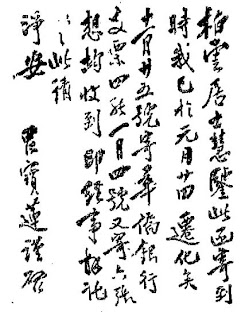 柏雲居士慧鑒此函寄到
時我已於元月廿四遷化矣
十一月廿五號寄華僑銀行
支票四張一月四號又寄六張
想均收到即經事在祈
以此續
淨安
智寶蓮謹啟